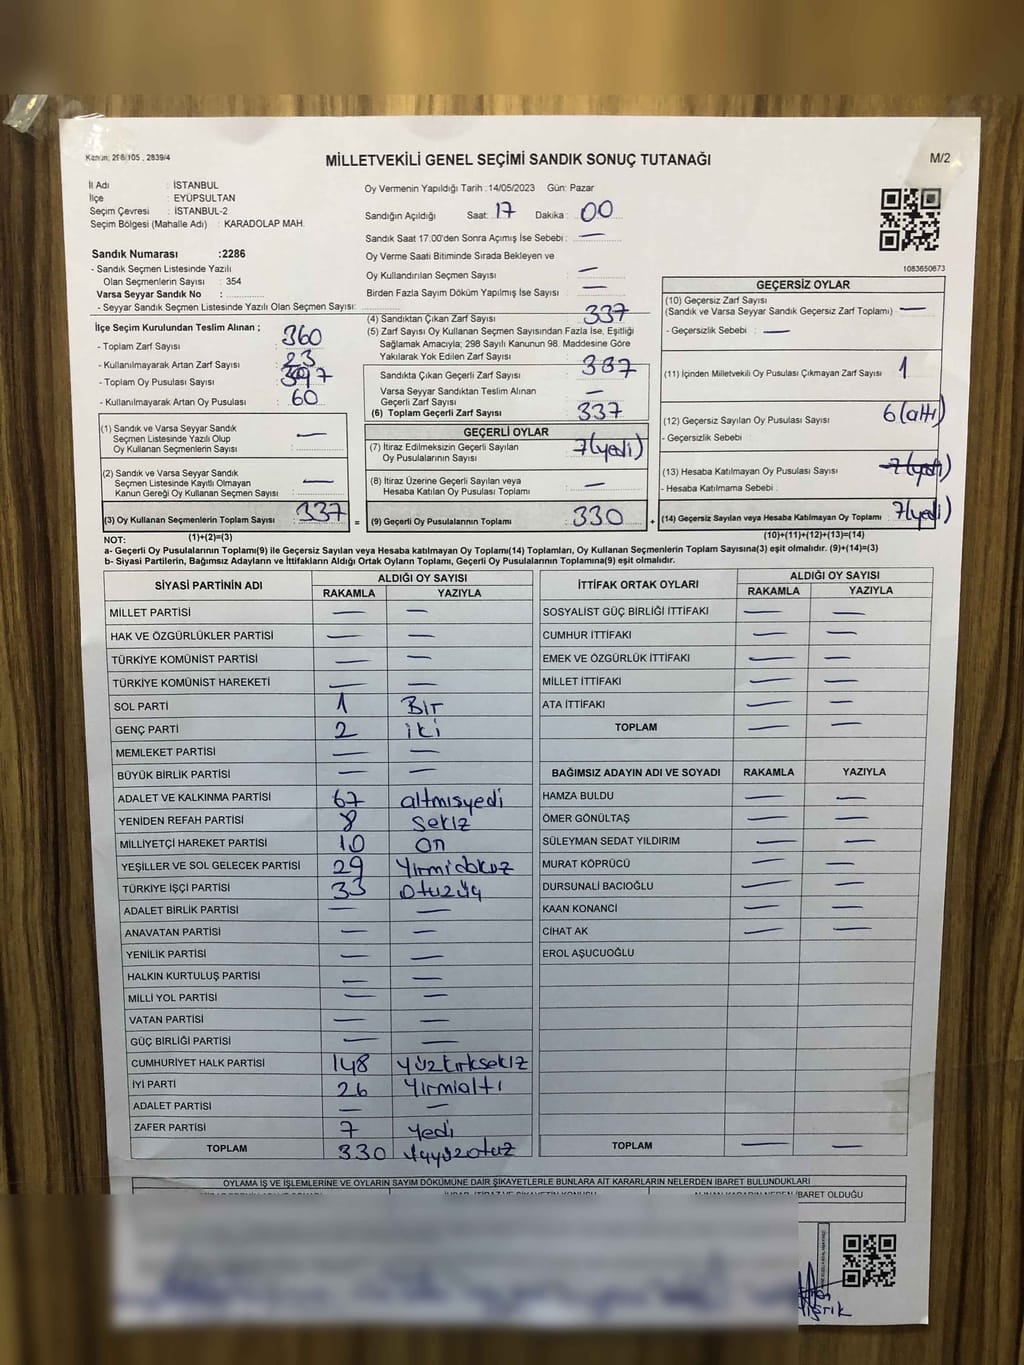 Kanun; 298/105 , 2839/4
MİLLETVEKİLİ GENEL SEÇİMİ SANDIK SONUÇ TUTANAĞI
M/2
İl Adı : İSTANBUL
İlçe : EYÜPSULTAN
Seçim Çevresi : İSTANBUL-2
Seçim Bölgesi (Mahalle Adı) : KARADOLAP MAH.
Oy Vermenin Yapıldığı Tarih : 14/05/2023 Gün: Pazar
Sandığın Açıldığı Saat: 17 Dakika : 00
Sandık Saat 17:00'den Sonra Açımış İse Sebebi : —
Oy Verme Saati Bitiminde Sırada Bekleyen ve
Oy Kullandırılan Seçmen Sayısı : —
Birden Fazla Sayım Döküm Yapılmış İse Sayısı : —
1083650673
Sandık Numarası :2286
- Sandık Seçmen Listesinde Yazılı
Olan Seçmenlerin Sayısı : 354
Varsa Seyyar Sandık No :
- Seyyar Sandık Seçmen Listesinde Yazılı Olan Seçmen Sayısı:
İlçe Seçim Kurulundan Teslim Alınan ;
- Toplam Zarf Sayısı : 360
- Kullanılmayarak Artan Zarf Sayısı : 23
- Toplam Oy Pusulası Sayısı : 397
- Kullanılmayarak Artan Oy Pusulası : 60
(1) Sandık ve Varsa Seyyar Sandık
Seçmen Listesinde Yazılı Olup
Oy Kullanan Seçmenlerin Sayısı : —
(2) Sandık ve Varsa Seyyar Sandık
Seçmen Listesinde Kayıtlı Olmayan
Kanun Gereği Oy Kullanan Seçmen Sayısı : —
(3) Oy Kullanan Seçmenlerin Toplam Sayısı : 337
(1)+(2)=(3)
(4) Sandıktan Çıkan Zarf Sayısı : 337
(5) Zarf Sayısı Oy Kullanan Seçmen Sayısından Fazla İse, Eşitliği
Sağlamak Amacıyla; 298 Sayılı Kanunun 98. Maddesine Göre
Yakılarak Yok Edilen Zarf Sayısı :
Sandıkta Çıkan Geçerli Zarf Sayısı : 337
Varsa Seyyar Sandıktan Teslim Alınan
Geçerli Zarf Sayısı : —
(6) Toplam Geçerli Zarf Sayısı : 337
GEÇERLİ OYLAR
(7) İtiraz Edilmeksizin Geçerli Sayılan
Oy Pusulalarının Sayısı : 7(yedi)
(8) İtiraz Üzerine Geçerli Sayılan veya
Hesaba Katılan Oy Pusulası Toplamı : —
= (9) Geçerli Oy Pusulalarının Toplamı : 330
GEÇERSİZ OYLAR
(10) Geçersiz Zarf Sayısı
(Sandık ve Varsa Seyyar Sandık Geçersiz Zarf Toplamı) : —
- Geçersizlik Sebebi : —
(11) İçinden Milletvekili Oy Pusulası Çıkmayan Zarf Sayısı : 1
(12) Geçersiz Sayılan Oy Pusulası Sayısı : 6(altı)
- Geçersizlik Sebebi :
(13) Hesaba Katılmayan Oy Pusulası Sayısı : 7(yedi)
- Hesaba Katılmama Sebebi :
+ (14) Geçersiz Sayılan veya Hesaba Katılmayan Oy Toplamı : 7(yedi)
(10)+(11)+(12)+(13)=(14)
NOT:
a- Geçerli Oy Pusulalarının Toplamı(9) ile Geçersiz Sayılan veya Hesaba katılmayan Oy Toplamı(14) Toplamları, Oy Kullanan Seçmenlerin Toplam Sayısına(3) eşit olmalıdır. (9)+(14)=(3)
b- Siyasi Partilerin, Bağımsız Adayların ve İttifakların Aldığı Ortak Oyların Toplamı, Geçerli Oy Pusulalarının Toplamına(9) eşit olmalıdır.
SİYASİ PARTİNİN ADI ALDIĞI OY SAYISI
RAKAMLA YAZIYLA
MİLLET PARTİSİ — —
HAK VE ÖZGÜRLÜKLER PARTİSİ — —
TÜRKİYE KOMÜNİST PARTİSİ — —
TÜRKİYE KOMÜNİST HAREKETİ — —
SOL PARTİ 1 Bir
GENÇ PARTİ 2 iki
MEMLEKET PARTİSİ — —
BÜYÜK BİRLİK PARTİSİ — —
ADALET VE KALKINMA PARTİSİ 67 altmışyedi
YENİDEN REFAH PARTİSİ 8 sekiz
MİLLİYETÇİ HAREKET PARTİSİ 10 on
YEŞİLLER VE SOL GELECEK PARTİSİ 29 Yirmidokuz
TÜRKİYE İŞÇİ PARTİSİ 33 otuzüç
ADALET BİRLİK PARTİSİ — —
ANAVATAN PARTİSİ — —
YENİLİK PARTİSİ — —
HALKIN KURTULUŞ PARTİSİ — —
MİLLİ YOL PARTİSİ — —
VATAN PARTİSİ — —
GÜÇ BİRLİĞİ PARTİSİ — —
CUMHURİYET HALK PARTİSİ 148 yüzkırksekiz
İYİ PARTİ 26 Yirmialtı
ADALET PARTİSİ — —
ZAFER PARTİSİ 7 Yedi
TOPLAM 330 üçyüzotuz
İTTİFAK ORTAK OYLARI ALDIĞI OY SAYISI
RAKAMLA YAZIYLA
SOSYALİST GÜÇ BİRLİĞİ İTTİFAKI — —
CUMHUR İTTİFAKI — —
EMEK VE ÖZGÜRLÜK İTTİFAKI — —
MİLLET İTTİFAKI — —
ATA İTTİFAKI — —
TOPLAM — —
BAĞIMSIZ ADAYIN ADI VE SOYADI RAKAMLA YAZIYLA
HAMZA BULDU — —
ÖMER GÖNÜLTAŞ — —
SÜLEYMAN SEDAT YILDIRIM — —
MURAT KÖPRÜCÜ — —
DURSUNALİ BACIOĞLU — —
KAAN KONANCİ — —
CİHAT AK — —
EROL AŞUCUOĞLU
TOPLAM — —
OYLAMA İŞ VE İŞLEMLERİNE VE OYLARIN SAYIM DÖKÜMÜNE DAİR ŞİKAYETLERLE BUNLARA AİT KARARLARIN NELERDEN İBARET BULUNDUKLARI
İBARET OLDUĞU